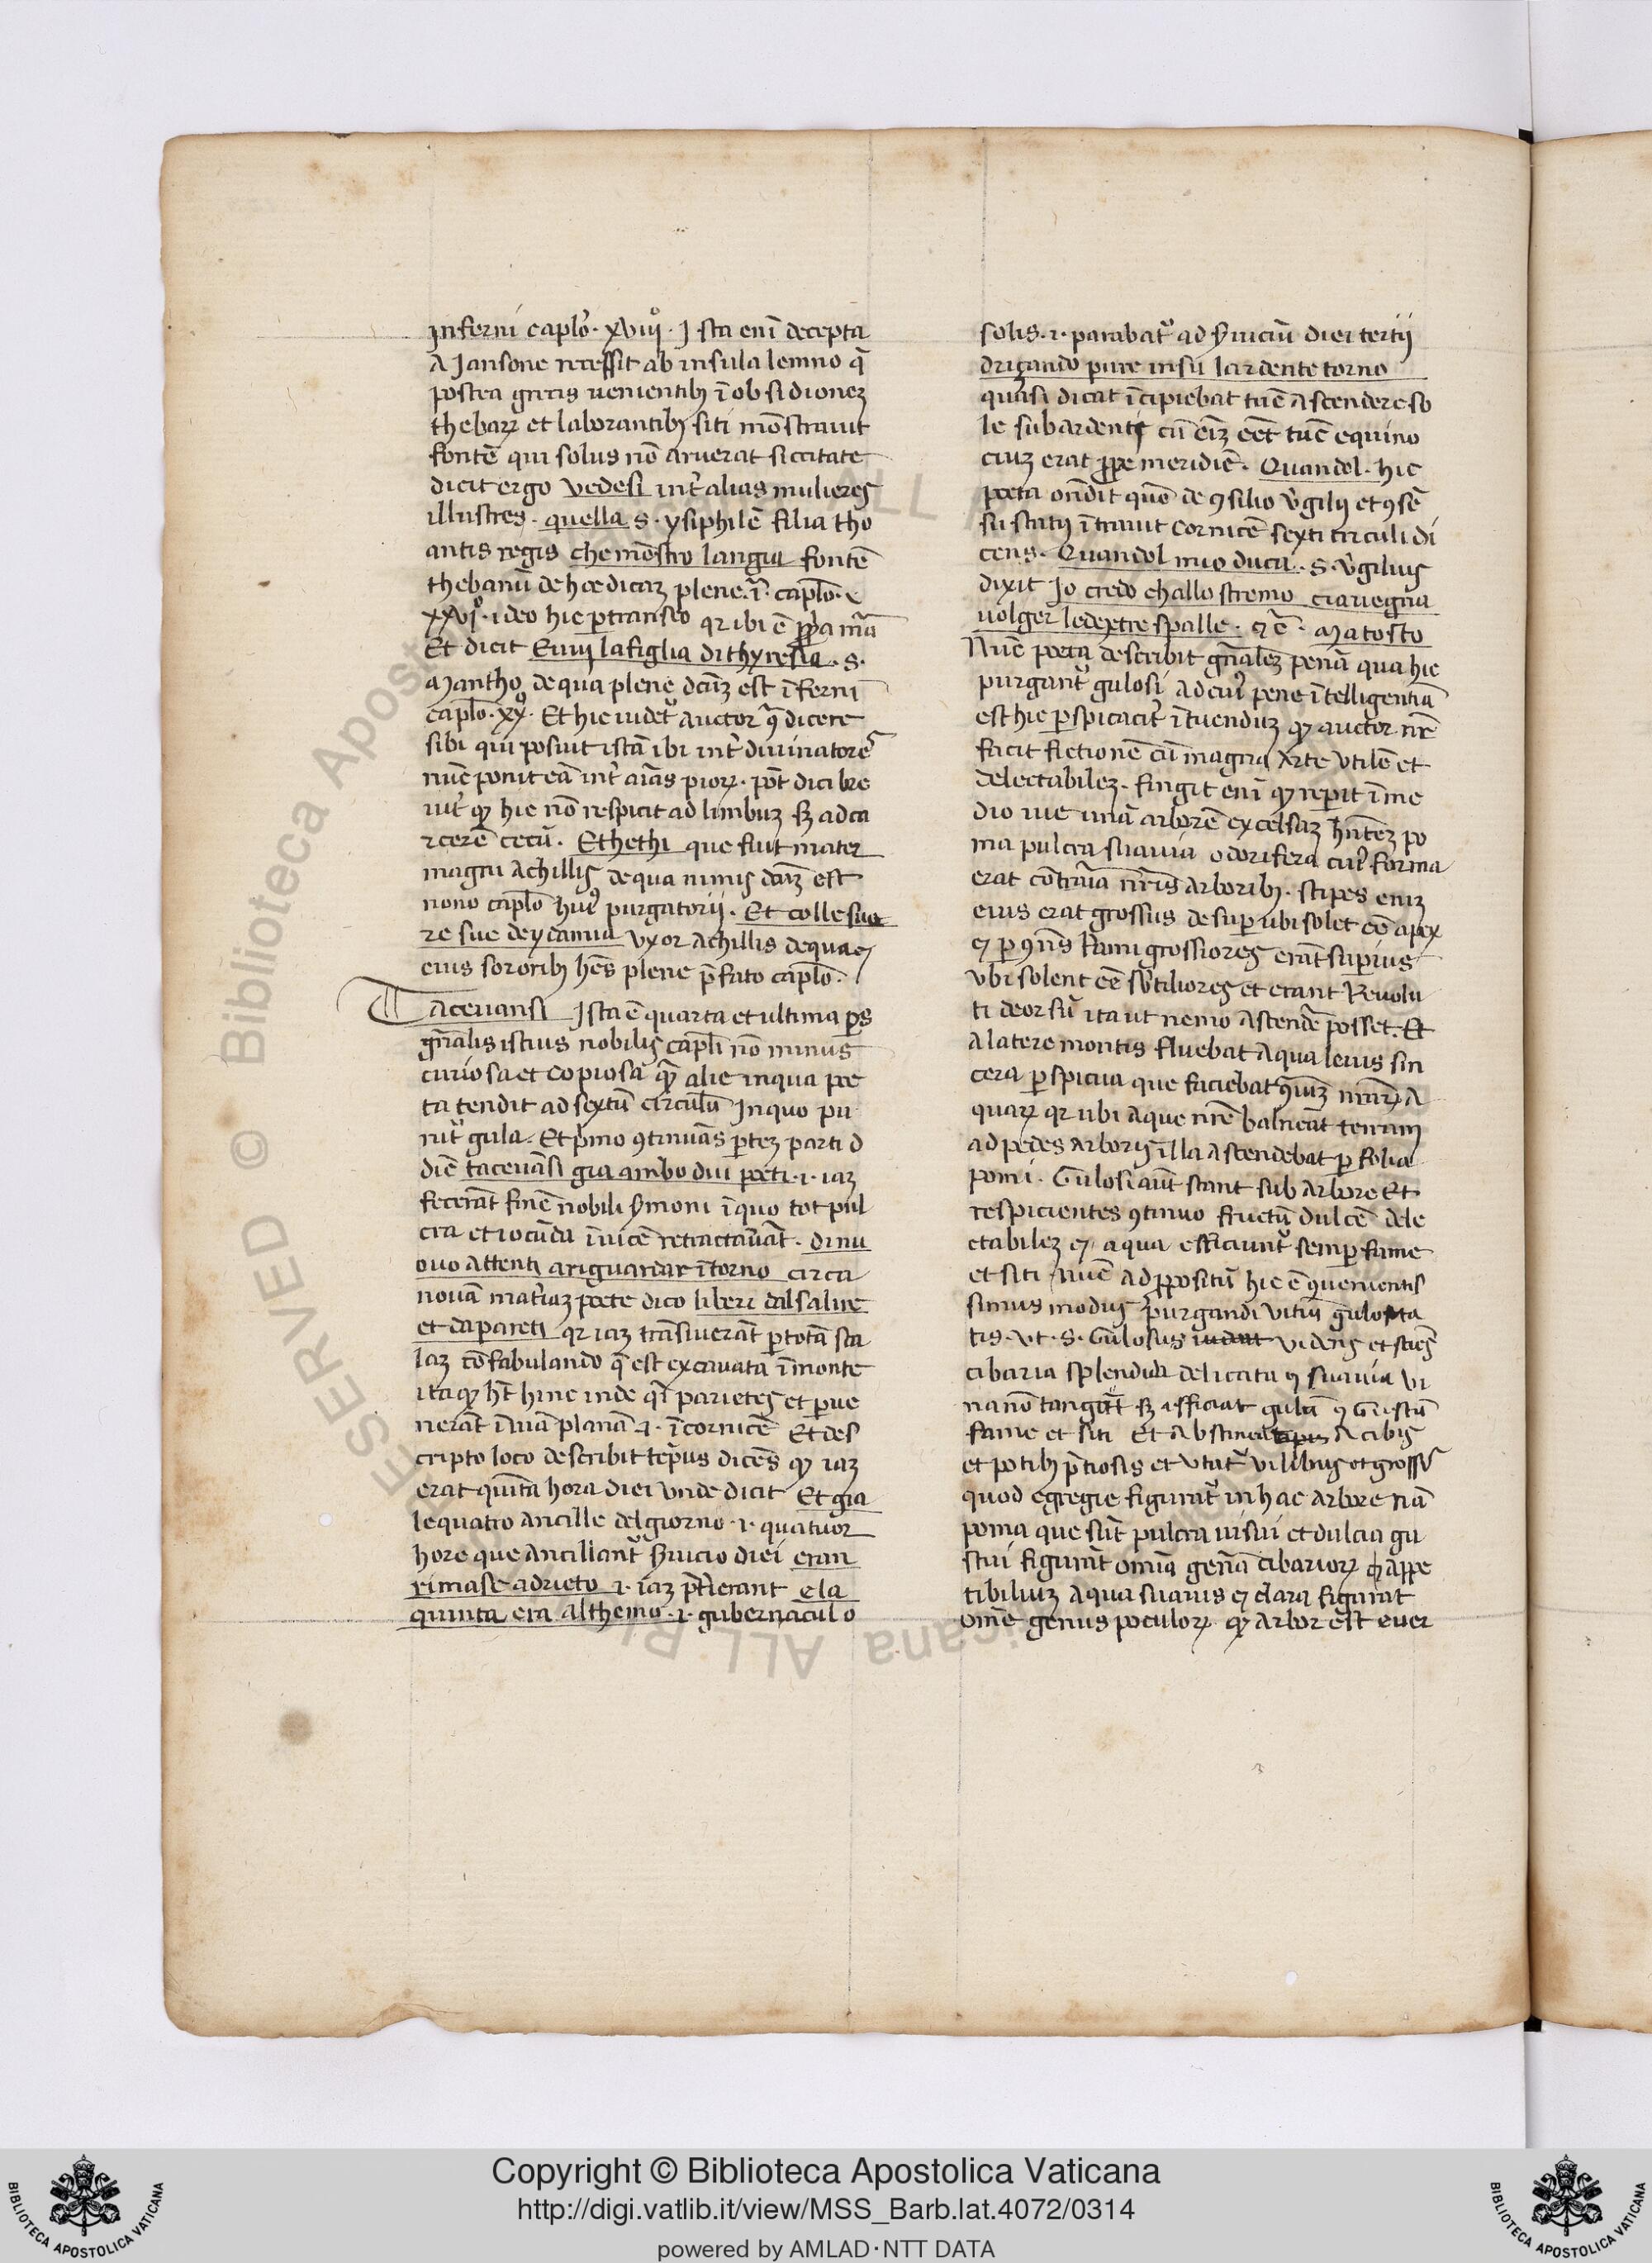 inferni caplo. xviii. Ista eni decepta
a Jansone recessit ab insula lemno q̄
postea grecis uenientibꝫ ī obsidioneꝫ
thebarꝝ et laborantibꝫ siti mōstrauit
fontē qui solus nō aruerat siccitate
dicit ergo vedesi int̄ alias mulieres
illustres. quella .s. ysiphilē filia tho
antis regis che mōstro langia fontē
thebanū de hoc dicaꝫ plene.
xxvi. ideo hic ptranseo qꝛ ibi ē ppa mā
Et dicit Euui lafiglia dithyresia .s.
Mantho de qua plene dcm̄ est īferni
caplo. xx. Et hic uidet auctor dicere
sibi qui posuit istā ibi int̄ diuinatores
nūc ponit eā int̄ aīas piorꝝ. pōt dici bre
uit̄ qꝫ hic nō respicit ad limbuꝫ sꝫ ad ca
rcerē cecū. Ethethi que fuit mater
magni Achillis de qua nimis dcm̄ est
nono caplo huiꝰ purgatorij. Et colle suo
re sue deydamia vxor Achillis de qua ⁊
eius sororibꝫ hēs plene p̄fato caplo.
Taceuansi Ista ē quarta et ultima ps
gn̄alis istius nobilis capli nō minus
curiosa et copiosa qꝫ alie in qua poe
ta tendit ad sextū circulū In quo pu
nit̄ gula. Et p̄mo ꝯtinuās pteꝫ parti d
diē taceuāsi gia ambo dui poeti .i. iaꝫ
fecerāt finē nobili smoni ī quo tot pul
cra et iocūda īuicē retractauāt. di nu
ouo attenti ariguardar ītorno circa
nouā mat̄iaꝫ poete dico liberi dal salire
et da pareti qꝛ iaꝫ trāsiuerāt p totā sca
laꝫ cōfabulando q̄ est excauata ī monte
ita qꝫ ht̄ hinc inde qī parietes et pue
nerāt ī uiā planā .i. ī cornicē Et des
cripto loco describit tēpus dicēs qꝫ iaꝫ
erat quīta hora diei vnde dicit Et gia
le quatro ancille del giorno .i. quatuor
hore que ancillant̄ suicio diei eran
rimase adrieto .i. iaꝫ p̄tierant e la
quinta era al themo .i. gubernaculo
solis .i. parabat̄ ad suiciū diei tertij
driçando pure in su lardente torno
quasi dicat īcipiebat tūc ascendere so
le sub ardenti cū eiꝫ eēt tūc equino
ciuꝫ erat ppe meridiē. Quandol. hic
poeta oñdit quō de ꝯsilio v̄gilij et ꝯsē
su statij ītrauit cornicē sexti circuli di
cens. Quandol mio duca .s. v̄gilius
dixit Io credo challo stremo cia uegna
uolger le dextre spalle. ⁊ ē. Ma tosto
Nūc poeta describit gn̄aleꝫ penā qua hic
purgant̄ gulosi ad cuiꝰ pene ītelligentiā
est hic pspicacit̄ ītuenduꝫ qꝫ auctor nr̄
facit fictionē cū magna Arte vtilē et
delectabileꝫ. fingit eni qꝫ repit ī me
dio uie unā arborē excelsaꝫ hn̄teꝫ po
ma pulcra suauia odorifera cuiꝰ forma
erat cōtraria nr̄is arboribꝫ. stipes eniꝫ
eius erat grossus desup ubi solet eē apex
⁊ p ꝯns̄ rami grossiores erāt superius
vbi solent eē subtiliores et erant reuolu
ti deorsū ita ut nemo ascendē posset. Et
a latere montis fluebat aqua leuis sin
cera pspicua que faciebat ꝯtiuꝫ nr̄arꝝ a
quarꝝ qꝛ ubi aque nr̄e balneāt terram
ad pedes arboris illa ascendebat p folia
pomi. Gulosi aūt stant sub arbore Et
respicientes ꝯtinuo fructū dulcē dele
ctabileꝫ ⁊ aqua efficiunt̄ semp fame
et siti. Nūc ad ppositū hic ē ꝯuenientis
simus modus purgandi vitiū gulosita
tis. vt .s. Gulosus uidens et sciēs
cibaria splendida delicata ꝯ suauia vi
na nō tangit sꝫ afficiat gulā ꝯ gustū
fame et siti Et abstineat a cibis
et potibꝫ p̄tiosis et vtat̄ vilibus et grossis
quod egregie figurat̄ in hac arbore nā
poma que sūt pulcra uisui et dulcia gu
stui figurāt omīa gen̄a cibariorꝝ appe
tibiliuꝫ aqua suauis ⁊ clara figurat
omē genus poculorꝝ qꝫ arbor est euer
Copyright © Biblioteca Apostolica Vaticana
http://digi.vatlib.it/view/MSS_Barb.lat.4072/0314
powered by AMLAD·NTT DATA
BIBLIOTECA APOSTOLICA VATICANA
BIBLIOTECA APOSTOLICA VATICANA